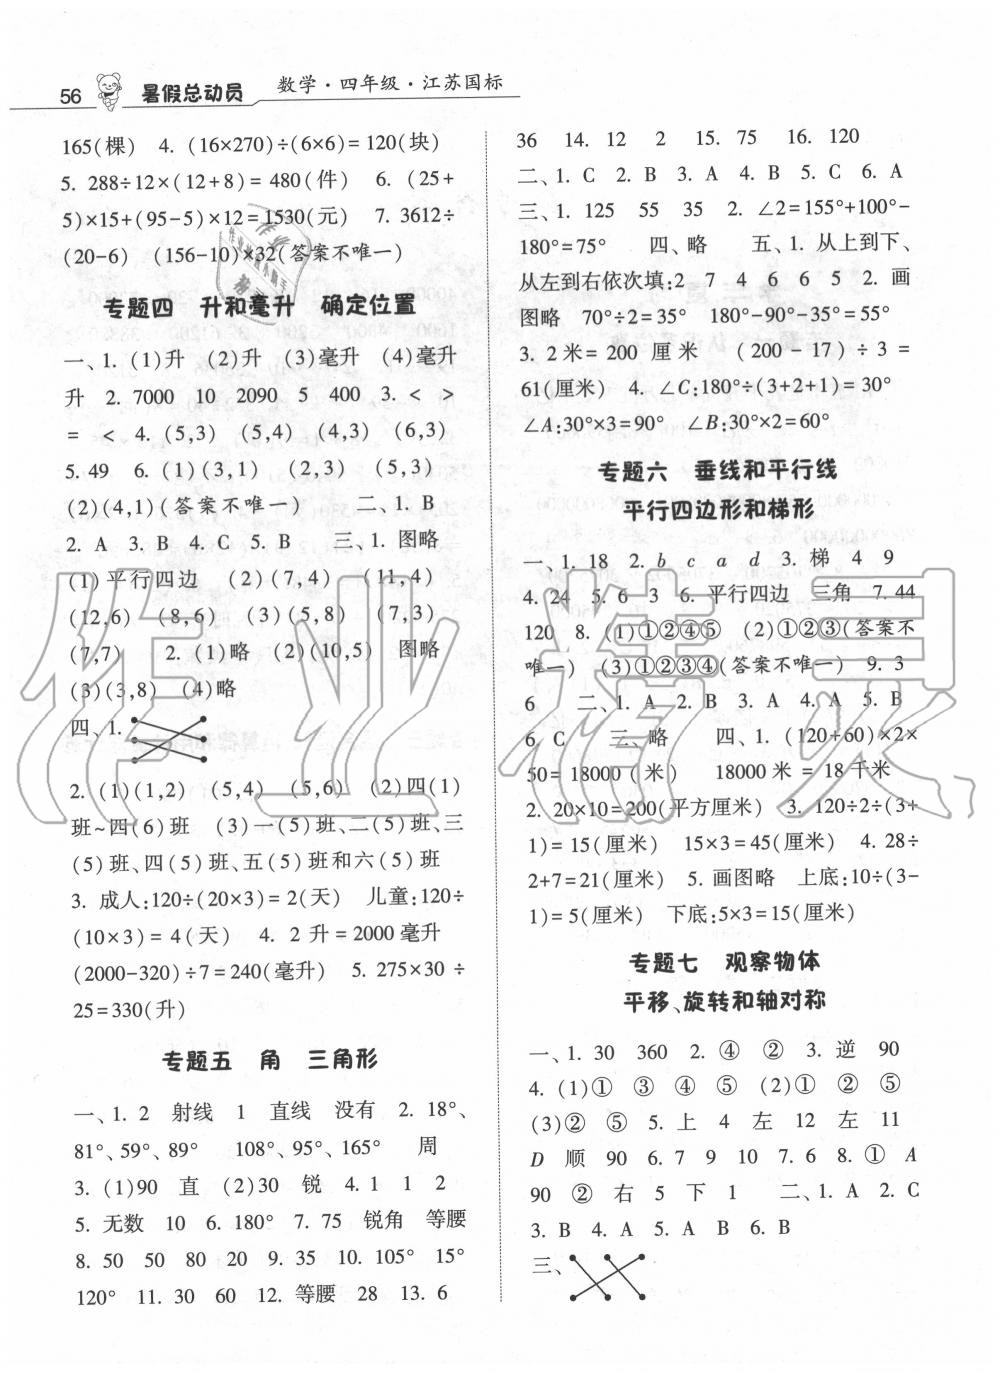 56 暑假总动员 数学·四年级·江苏国标
165(棵) 4. (16×270)÷(6×6)=120(块)
5. 288÷12×(12+8)= 480(件) 6. (25+
5)×15+(95-5)×12=1530(元) 7. 3612÷
(20-6) (156-10)×32(答案不唯一)
专题四 升和毫升 确定位置
一、1. (1)升 (2)升 (3)毫升 (4)毫升
升 2. 7000 10 2090 5 400 3. < >
= < 4. (5,3) (5,4) (4,3) (6,3)
5. 49 6. (1)(3,1) (2,3) (5,3)
(2)(4,1)(答案不唯一) 二、1. B
2. A 3. B 4. C 5. B 三、1. 图略
(1)平行四边 (2)(7,4) (11,4)
(12,6) (8,6) (3)(5,8) (7,3)
(7,7) 2. (1)略 (2)(10,5) 图略
(3)(3,8) (4)略
四、1.
2. (1)(1,2) (5,4) (5,6) (2)四(1)
班~四(6)班 (3)一(5)班、二(5)班、三
(5)班、四(5)班、五(5)班和六(5)班
3. 成人:120÷(20×3)=2(天) 儿童:120÷
(10×3)=4(天) 4. 2升=2000毫升
(2000-320)÷7=240(毫升) 5. 275×30÷
25=330(升)
专题五 角 三角形
一、1. 2 射线 1 直线 没有 2. 18°、
81°、59°、89° 108°、95°、165° 周
3. (1)90 直 (2)30 锐 4. 1 1 2
5. 无数 10 6. 180° 7. 75 锐角 等腰
8. 50 50 80 20 9. 35 10. 105° 15°
120° 11. 30 60 12. 等腰 28 13. 6
36 14. 12 2 15. 75 16. 120
二、1. C 2. B 3. A 4. B 5. C 6. A
三、1. 125 55 35 2. ∠2=155°+100°-
180°=75° 四、略 五、1. 从上到下、
从左到右依次填:2 7 4 6 6 5 2. 画
图略 70°÷2=35° 180°-90°-35°=55°
3. 2米=200厘米 (200-17)÷3=
61(厘米) 4. ∠C:180°÷(3+2+1)=30°
∠A:30°×3=90° ∠B:30°×2=60°
专题六 垂线和平行线
平行四边形和梯形
一、1. 18 2. b c a d 3. 梯 4 9
4. 24 5. 6 3 6. 平行四边 三角 7. 44
120 8. (1)①②④⑤ (2)①②③(答案不
唯一) (3)①②③④(答案不唯一) 9. 3
6 二、1. A 2. B 3. A 4. A 5. B
6. C 三、略 四、1. (120+60)×2×
50=18000(米) 18000米=18千米
2. 20×10=200(平方厘米) 3. 120÷2÷(3+
1)=15(厘米) 15×3=45(厘米) 4. 28÷
2+7=21(厘米) 5. 画图略 上底:10÷(3-
1)=5(厘米) 下底:5×3=15(厘米)
专题七 观察物体
平移、旋转和轴对称
一、1. 30 360 2. ④ ② 3. 逆 90
4. (1)① ③ ④ ⑤ (2)① ② ⑤
(3)② ⑤ 5. 上 4 左 12 左 11
D 顺 90 6. 7 9 10 7. 6 8. ① A
90 ② 右 5 下 1 二、1. A 2. C
3. B 4. A 5. A B 6. B
三、
作业精灵